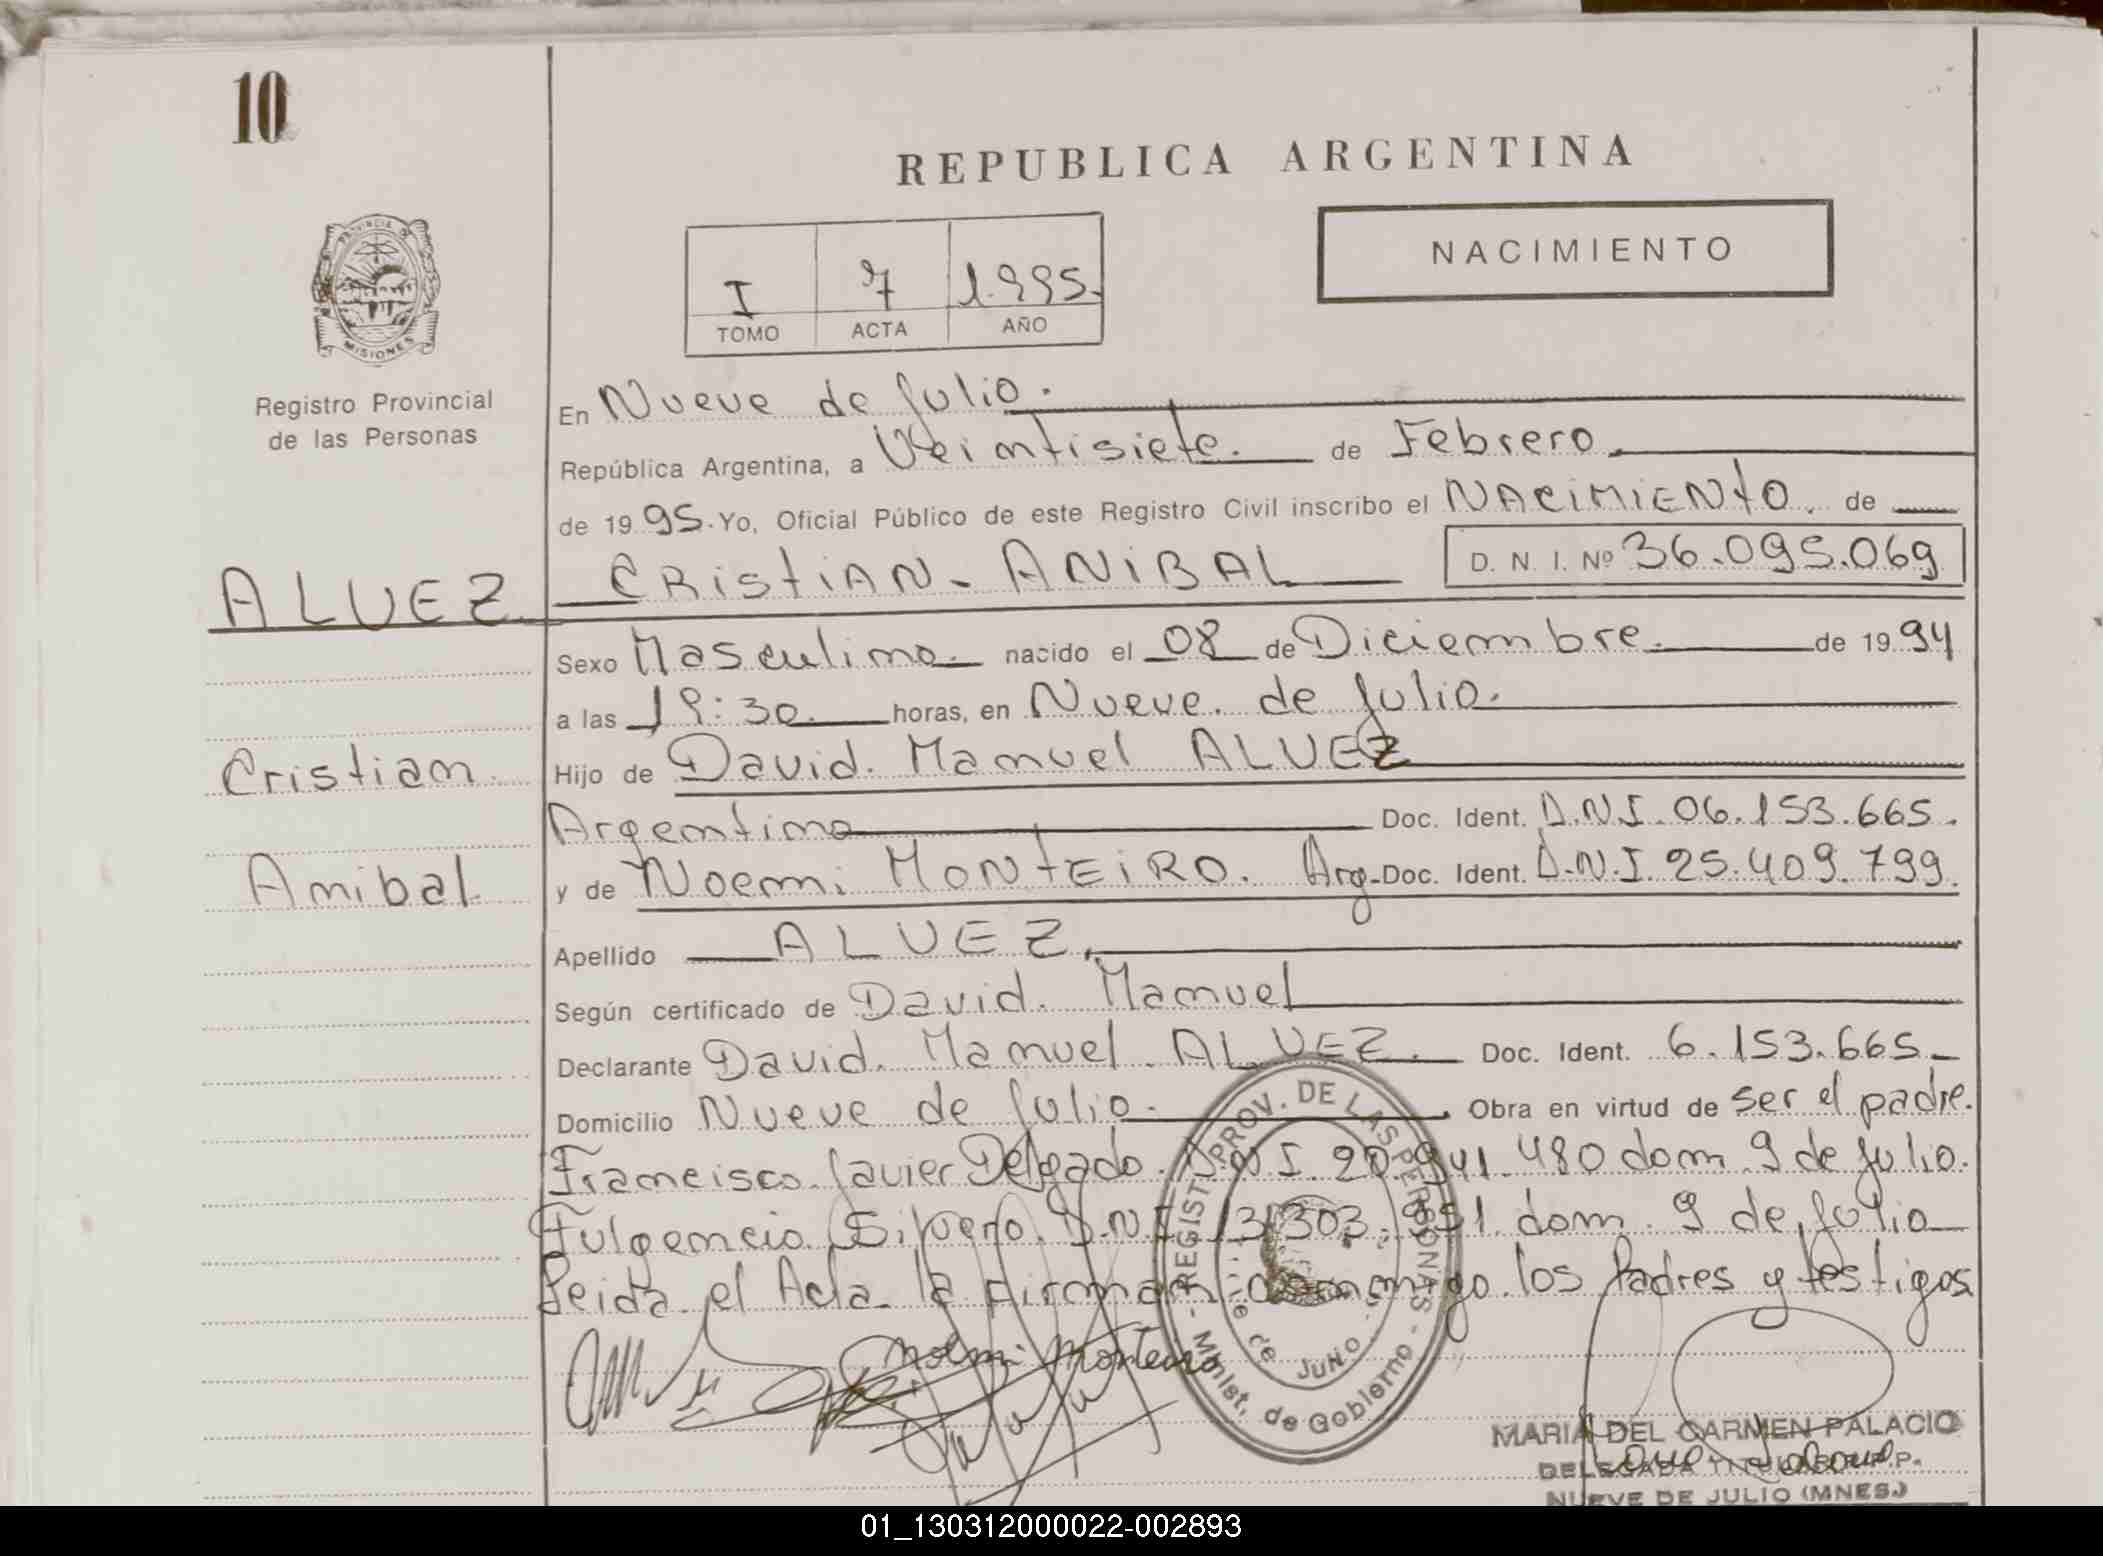 10
REPUBLICA ARGENTINA
NACIMIENTO
I 7 1.995.
TOMO ACTA AÑO
PROVINCIA DE
MISIONES
Registro Provincial
de las Personas
En Nueve de Julio.
República Argentina, a Veintisiete. de Febrero.
de 19 95. Yo, Oficial Público de este Registro Civil inscribo el NACIMIENTO. de
ALVEZ CRISTIAN - ANIBAL D. N. I. Nº 36.095.069
Sexo Masculino. nacido el 08 de Diciembre. de 19 94
a las 19:30. horas, en Nueve de Julio.
Cristian Hijo de David. Manuel ALVEZ
Argentino Doc. Ident. D.N.I. 06.153.665.
Anibal y de Noemi MONTEIRO. Arg- Doc. Ident. D.N.I. 25.409.799.
Apellido ALVEZ.
Según certificado de David. Manuel
Declarante David. Manuel ALVEZ. Doc. Ident. 6.153.665
Domicilio Nueve de Julio. Obra en virtud de ser el padre.
Francisco Javier Delgado. D.N.I. 20.941.480 dom. 9 de Julio.
Fulgencio Silvero. D.N.I. 13.303.951. dom. 9 de Julio
Leida el Acta la firman conmigo los Padres y testigos
Noemi Monteiro
REGIST. PROV. DE LAS PERSONAS - Minist. de Gobierno -
de Julio
MARIA DEL CARMEN PALACIO
DELEGADA TITULAR R.P.P.
NUEVE DE JULIO (MNES.)
01_130312000022-002893